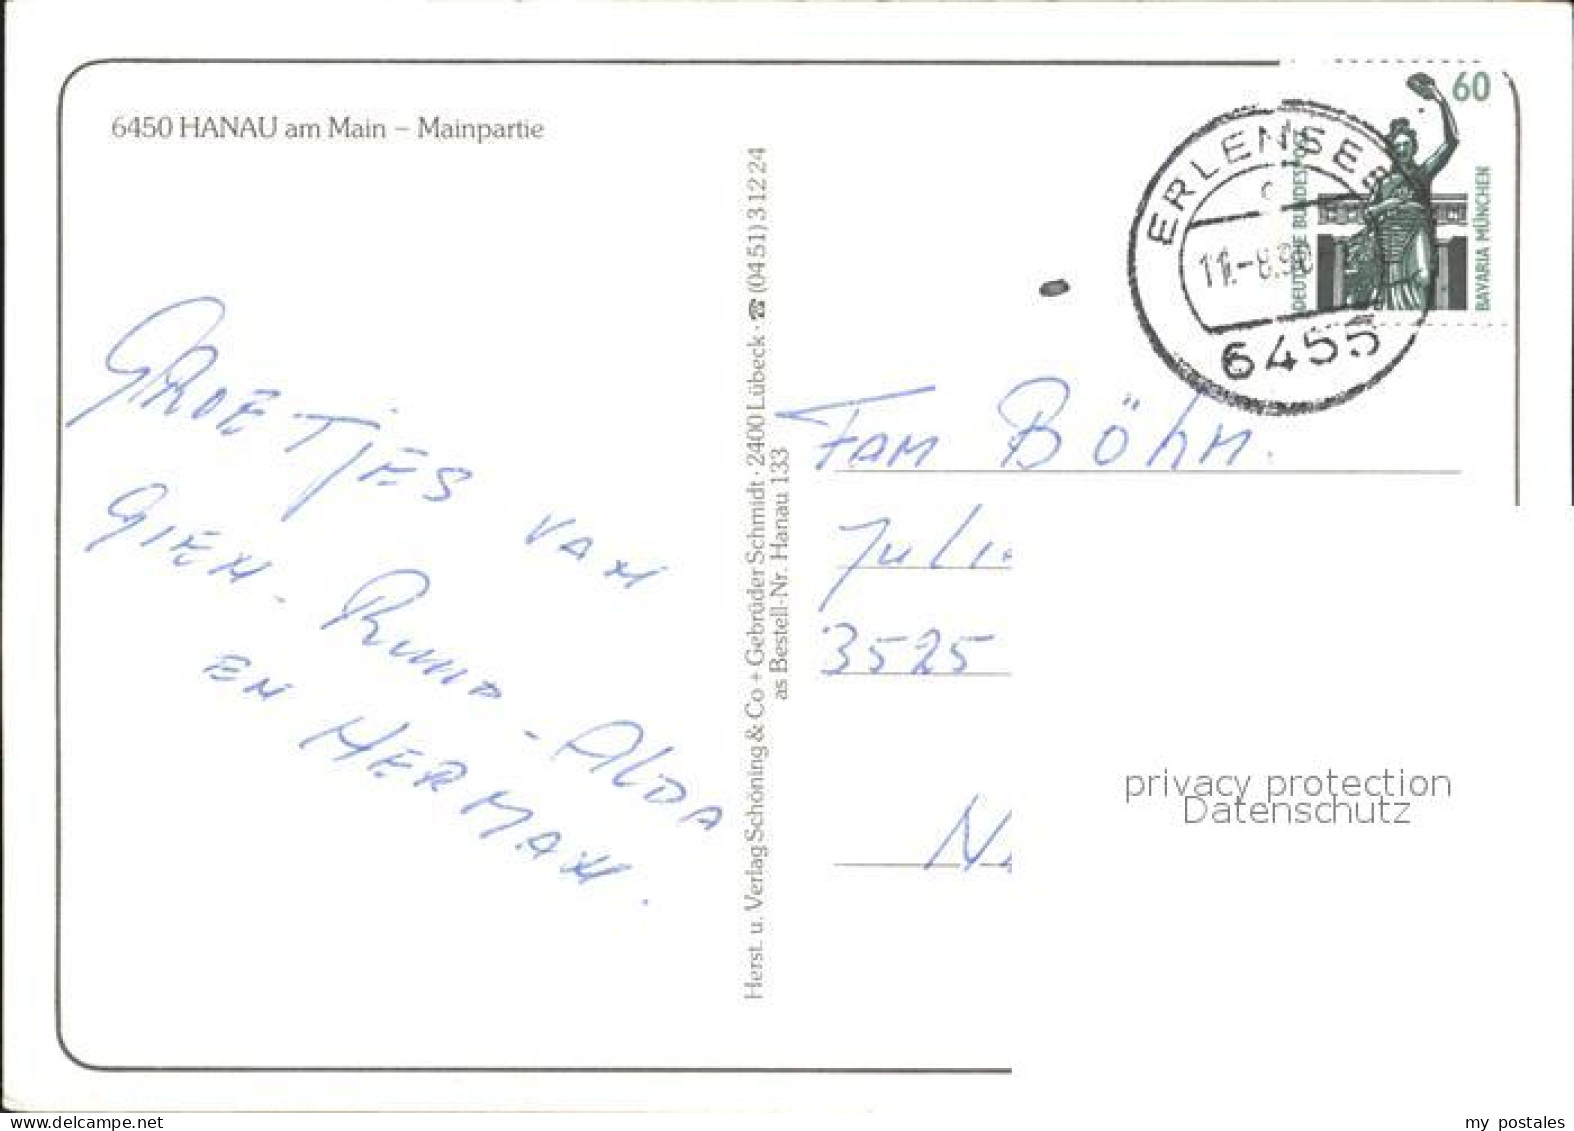 6450 HANAU am Main – Mainpartie
GROETJES VAN
GIEN - RUUD - ALDA
EN HERMAN.
Herst. u. Verlag Schöning & Co + Gebrüder Schmidt · 2400 Lübeck · ☎ (0451) 3 12 24
as Bestell-Nr. Hanau 133
60
DEUTSCHE BUNDESPOST
BAVARIA MÜNCHEN
ERLENSEE
c
11.-8.90
6455
FAM BÖHM.
3525
privacy protection
Datenschutz
my postales
delcampe.net